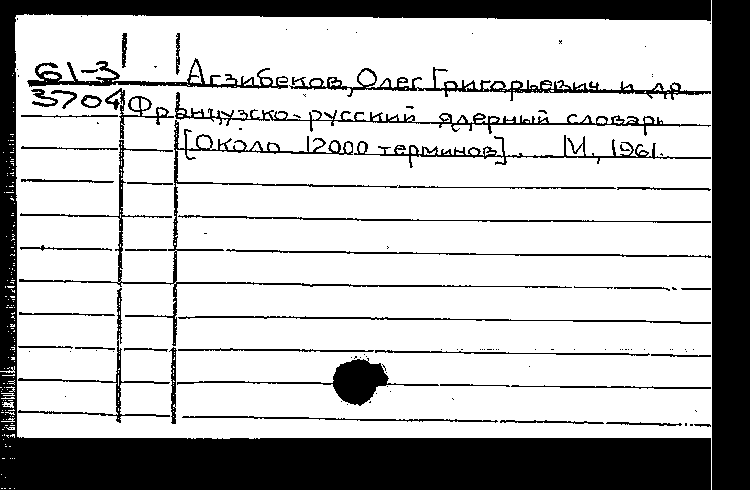 61-3 Агзибеков, Олег Григорьевич и др
3704 Французско-русский ядерный словарь
[Около 12000 терминов]. М., 1961.